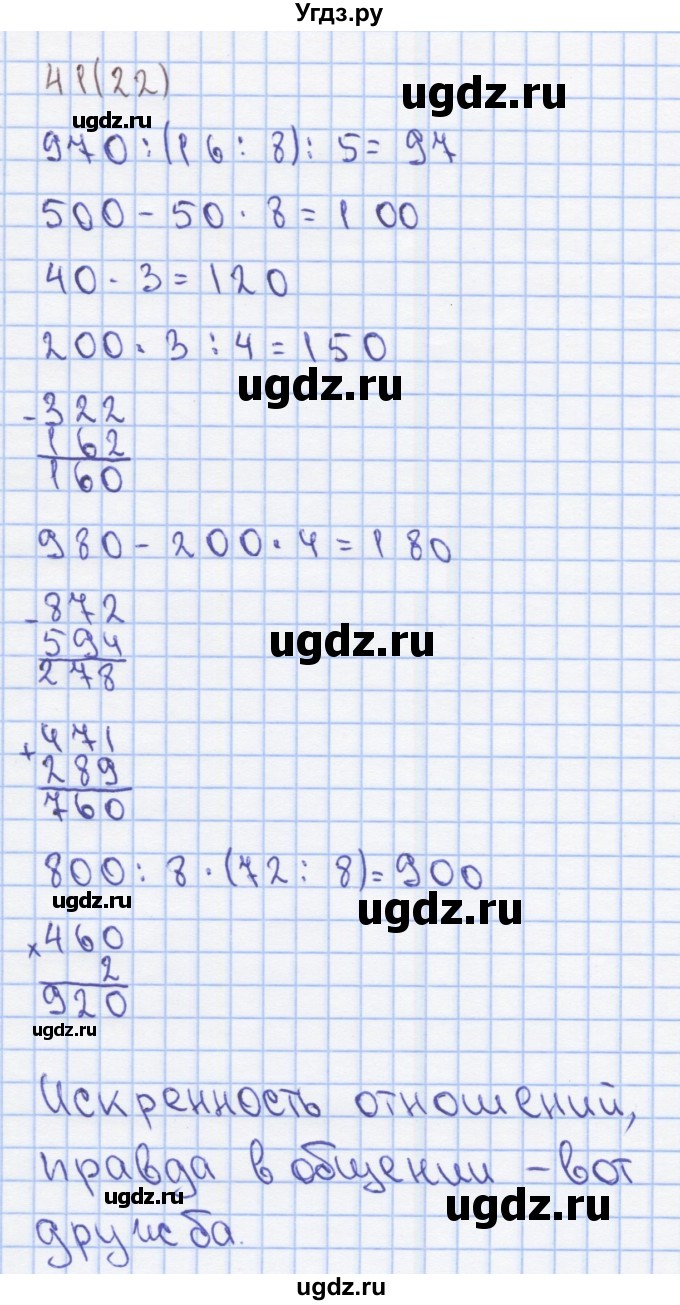 Угдз.ру
41(22)
ugdz.ru
ugdz.ru
970:(16:8):5=97
500-50·8=100
40·3=120
200·3:4=150
ugdz.ru
-322
162
160
980-200·4=180
-872
594
278
ugdz.ru
+471
289
760
800:8·(72:8)=900
ugdz.ru
ugdz.ru
×460
2
920
ugdz.ru
Искренность отношений,
правда в общении -вот
ugdz.ru
ugdz.ru
дружба.
ugdz.ru